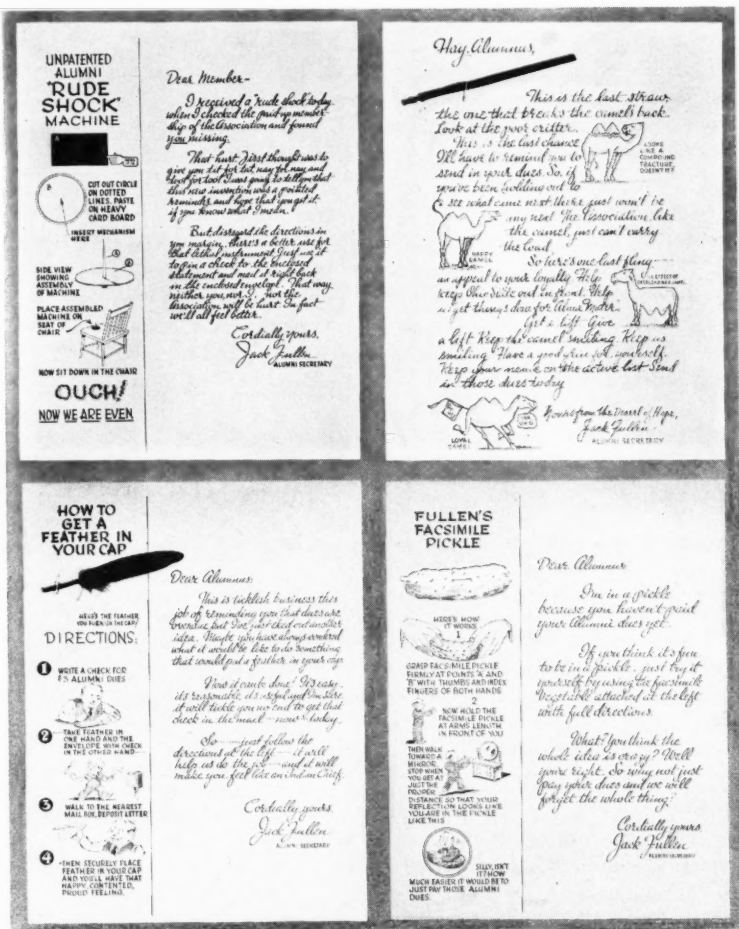 UNPATENTED
ALUMNI
"RUDE
SHOCK"
MACHINE
A
CUT OUT CIRCLE
ON DOTTED
LINES. PASTE
ON HEAVY
CARD BOARD
INSERT MECHANISM
HERE
SIDE VIEW
SHOWING
ASSEMBLY
OF MACHINE
PLACE ASSEMBLED
MACHINE ON
SEAT OF
CHAIR
NOW SIT DOWN IN THE CHAIR
OUCH!
NOW WE ARE EVEN
Dear Member-
I received a "rude shock" today
when I checked the paid up member-
ship of the Association and found
you missing.
That hurt. First thought was to
give you tit for tat, nay for nay and
toot for toot. I was going to tell you that
this new invention was a pointed
reminder and hope that you get it
if you know what I mean.
But disregard the directions in
you margin, there's a better use for
that lethal instrument. Just use it
to pin a check to the enclosed
statement and mail it right back
in the enclosed envelope. That way,
neither you, nor I, nor the
Association will be hurt. In fact
we'll all feel better.
Cordially yours,
Jack Fullen
ALUMNI SECRETARY
Hay, Alumnus,
This is the last straw
the one that breaks the camel's back.
Look at the poor critter.
LOOKS
LIKE A
COMPOUND
FRACTURE,
DOESN'T IT?
This is the last chance
I'll have to remind you to
send in your dues. So, if
you've been holding out to
see what came next there just won't be
any next. The Association, like
the camel, just can't carry
the load.
HAPPY
CAMEL
So here's one last fling—
an appeal to your loyalty. Help
keep Ohio State out in front. Help
us get things done for Alma Mater.
Get a lift. Give
a lift. Keep the camel smiling. Keep us
smiling. Have a good time for yourself.
Keep your name on the active list. Send
in those dues today
LOYAL
CAMEL
Yours from the Desert of Hope,
Jack Fullen
ALUMNI SECRETARY
HOW TO
GET A
FEATHER IN
YOUR CAP
HERE'S THE FEATHER
YOU PUT IN THE CAP
DIRECTIONS:
1 WRITE A CHECK FOR
$3 ALUMNI DUES
2 —TAKE FEATHER IN
ONE HAND AND THE
ENVELOPE WITH CHECK
IN THE OTHER HAND—
3 WALK TO THE NEAREST
MAIL BOX, DEPOSIT LETTER
4 —THEN SECURELY PLACE
FEATHER IN YOUR CAP
AND YOU'LL HAVE THAT
HAPPY, CONTENTED,
PROUD FEELING.
Dear Alumnus:
This is ticklish business this
job of reminding you that dues are
overdue, but I've just eked out another
idea. Maybe you have always wondered
what it would be like to do something
that would put a feather in your cap.
Now it can be done! It's easy,
it's reasonable, it's useful and I'm sure
it will tickle you no end to get that
check in the mail—now—today.
So——just follow the
directions at the left—it will
help us do the job—and it will
make you feel like an Indian Chief.
Cordially yours,
Jack Fullen
ALUMNI SECRETARY
FULLEN'S
FACSIMILE
PICKLE
HERE'S HOW
IT WORKS
1
GRASP FACSIMILE PICKLE
FIRMLY AT POINTS "A" AND
"B" WITH THUMBS AND INDEX
FINGERS OF BOTH HANDS
2
NOW HOLD THE
FACSIMILE PICKLE
AT ARMS LENGTH
IN FRONT OF YOU
THEN WALK
TOWARD A
MIRROR.
STOP WHEN
YOU GET AT
JUST THE
PROPER
DISTANCE SO THAT YOUR
REFLECTION LOOKS LIKE
YOU ARE IN THE PICKLE
LIKE THIS
SILLY, ISN'T
IT? HOW
MUCH EASIER IT WOULD BE TO
JUST PAY THOSE ALUMNI
DUES.
Dear Alumnus
I'm in a pickle
because you haven't paid
your Alumni dues yet.
If you think it's fun
to be in a pickle, just try it
yourself by using the facsimile
vegetable attached at the left
with full directions.
What? You think the
whole idea is crazy? Well
you're right. So why not just
pay your dues and we will
forget the whole thing?
Cordially yours
Jack Fullen
ALUMNI SECRETARY